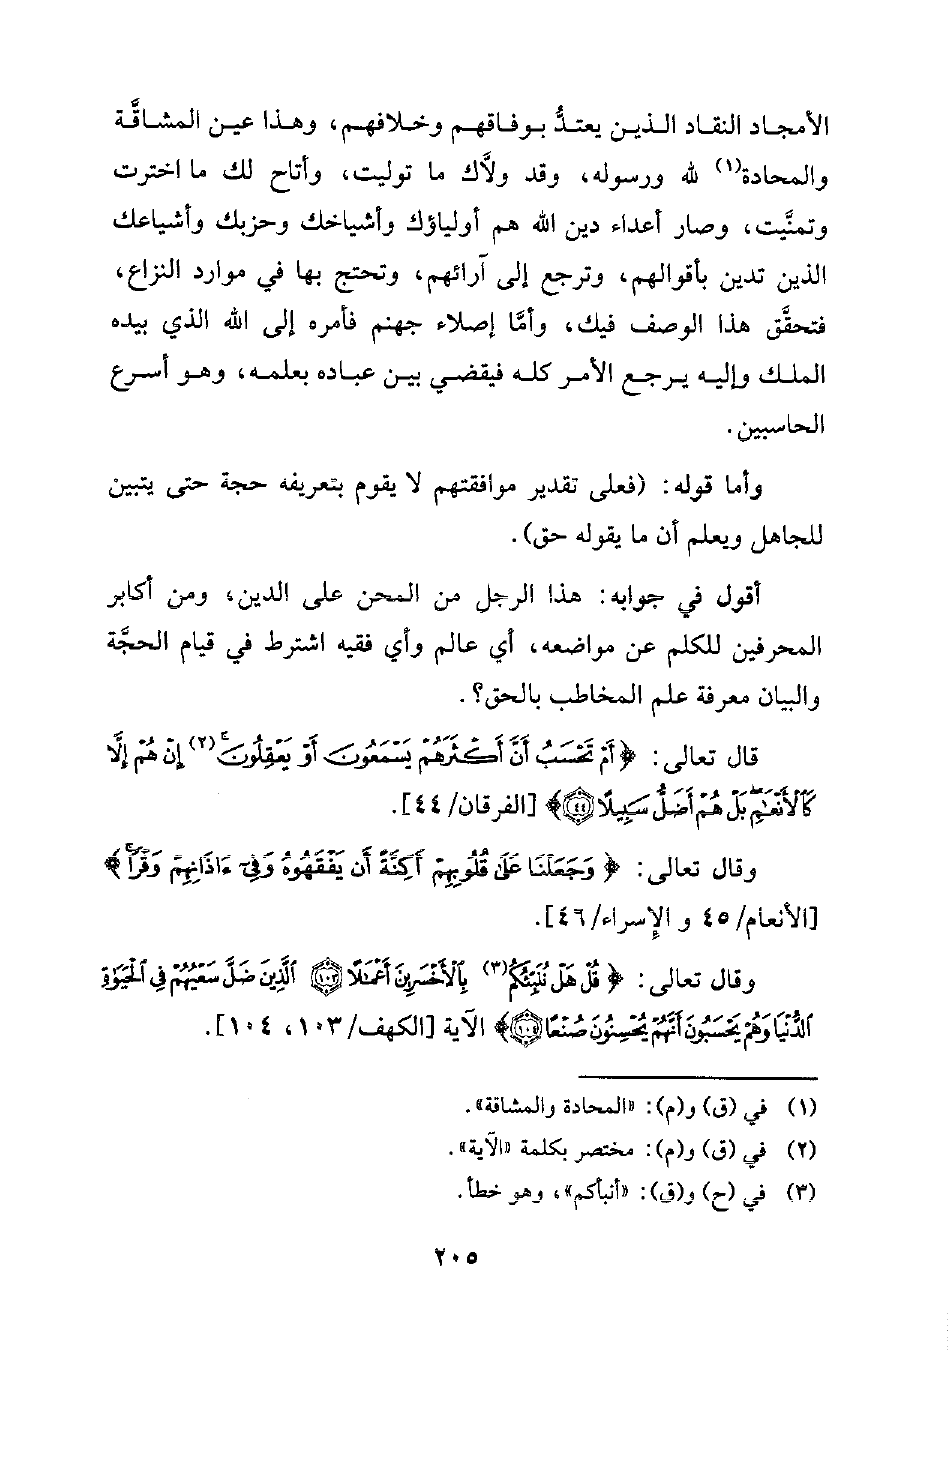 الأمجاد النقاد الذين يعتدُّ بوفاقهم وخلافهم، وهذا عين المشاقَّة
والمحادة(١) لله ورسوله، وقد ولاَّك ما توليت، وأتاح لك ما اخترت
وتمنَّيت، وصار أعداء دين الله هم أولياؤك وأشياخك وحزبك وأشياعك
الذين تدين بأقوالهم، وترجع إلى آرائهم، وتحتج بها في موارد النزاع،
فتحقَّق هذا الوصف فيك، وأمَّا إصلاء جهنم فأمره إلى الله الذي بيده
الملك وإليه يرجع الأمر كله فيقضي بين عباده بعلمه، وهو أسرع
الحاسبين.
وأما قوله: (فعلى تقدير موافقتهم لا يقوم بتعريفه حجة حتى يتبين
للجاهل ويعلم أن ما يقوله حق).
أقول في جوابه: هذا الرجل من المحن على الدين، ومن أكابر
المحرفين للكلم عن مواضعه، أي عالم وأي فقيه اشترط في قيام الحجَّة
والبيان معرفة علم المخاطب بالحق؟.
قال تعالى: ﴿أَمْ تَحْسَبُ أَنَّ أَكْثَرَهُمْ يَسْمَعُونَ أَوْ يَعْقِلُونَ ۚ(٢) إِنْ هُمْ إِلَّا
كَالْأَنْعَٰمِ ۖ بَلْ هُمْ أَضَلُّ سَبِيلًا ٤٤﴾ [الفرقان/ ٤٤].
وقال تعالى: ﴿وَجَعَلْنَا عَلَىٰ قُلُوبِهِمْ أَكِنَّةً أَن يَفْقَهُوهُ وَفِيٓ ءَاذَانِهِمْ وَقْرًا ۚ﴾
[الأنعام/ ٤٥ و الإسراء/ ٤٦].
وقال تعالى: ﴿قُلْ هَلْ نُنَبِّئُكُم(٣) بِالْأَخْسَرِينَ أَعْمَٰلًا ١٠٣ الَّذِينَ ضَلَّ سَعْيُهُمْ فِي الْحَيَوٰةِ
الدُّنْيَا وَهُمْ يَحْسَبُونَ أَنَّهُمْ يُحْسِنُونَ صُنْعًا ١٠٤﴾ الآية [الكهف/ ١٠٣، ١٠٤].
(١) في (ق) و(م): «المحادة والمشاقة».
(٢) في (ق) و(م): مختصر بكلمة «الآية».
(٣) في (ح) و(ق): «أنبأكم»، وهو خطأ.
٢٠٥